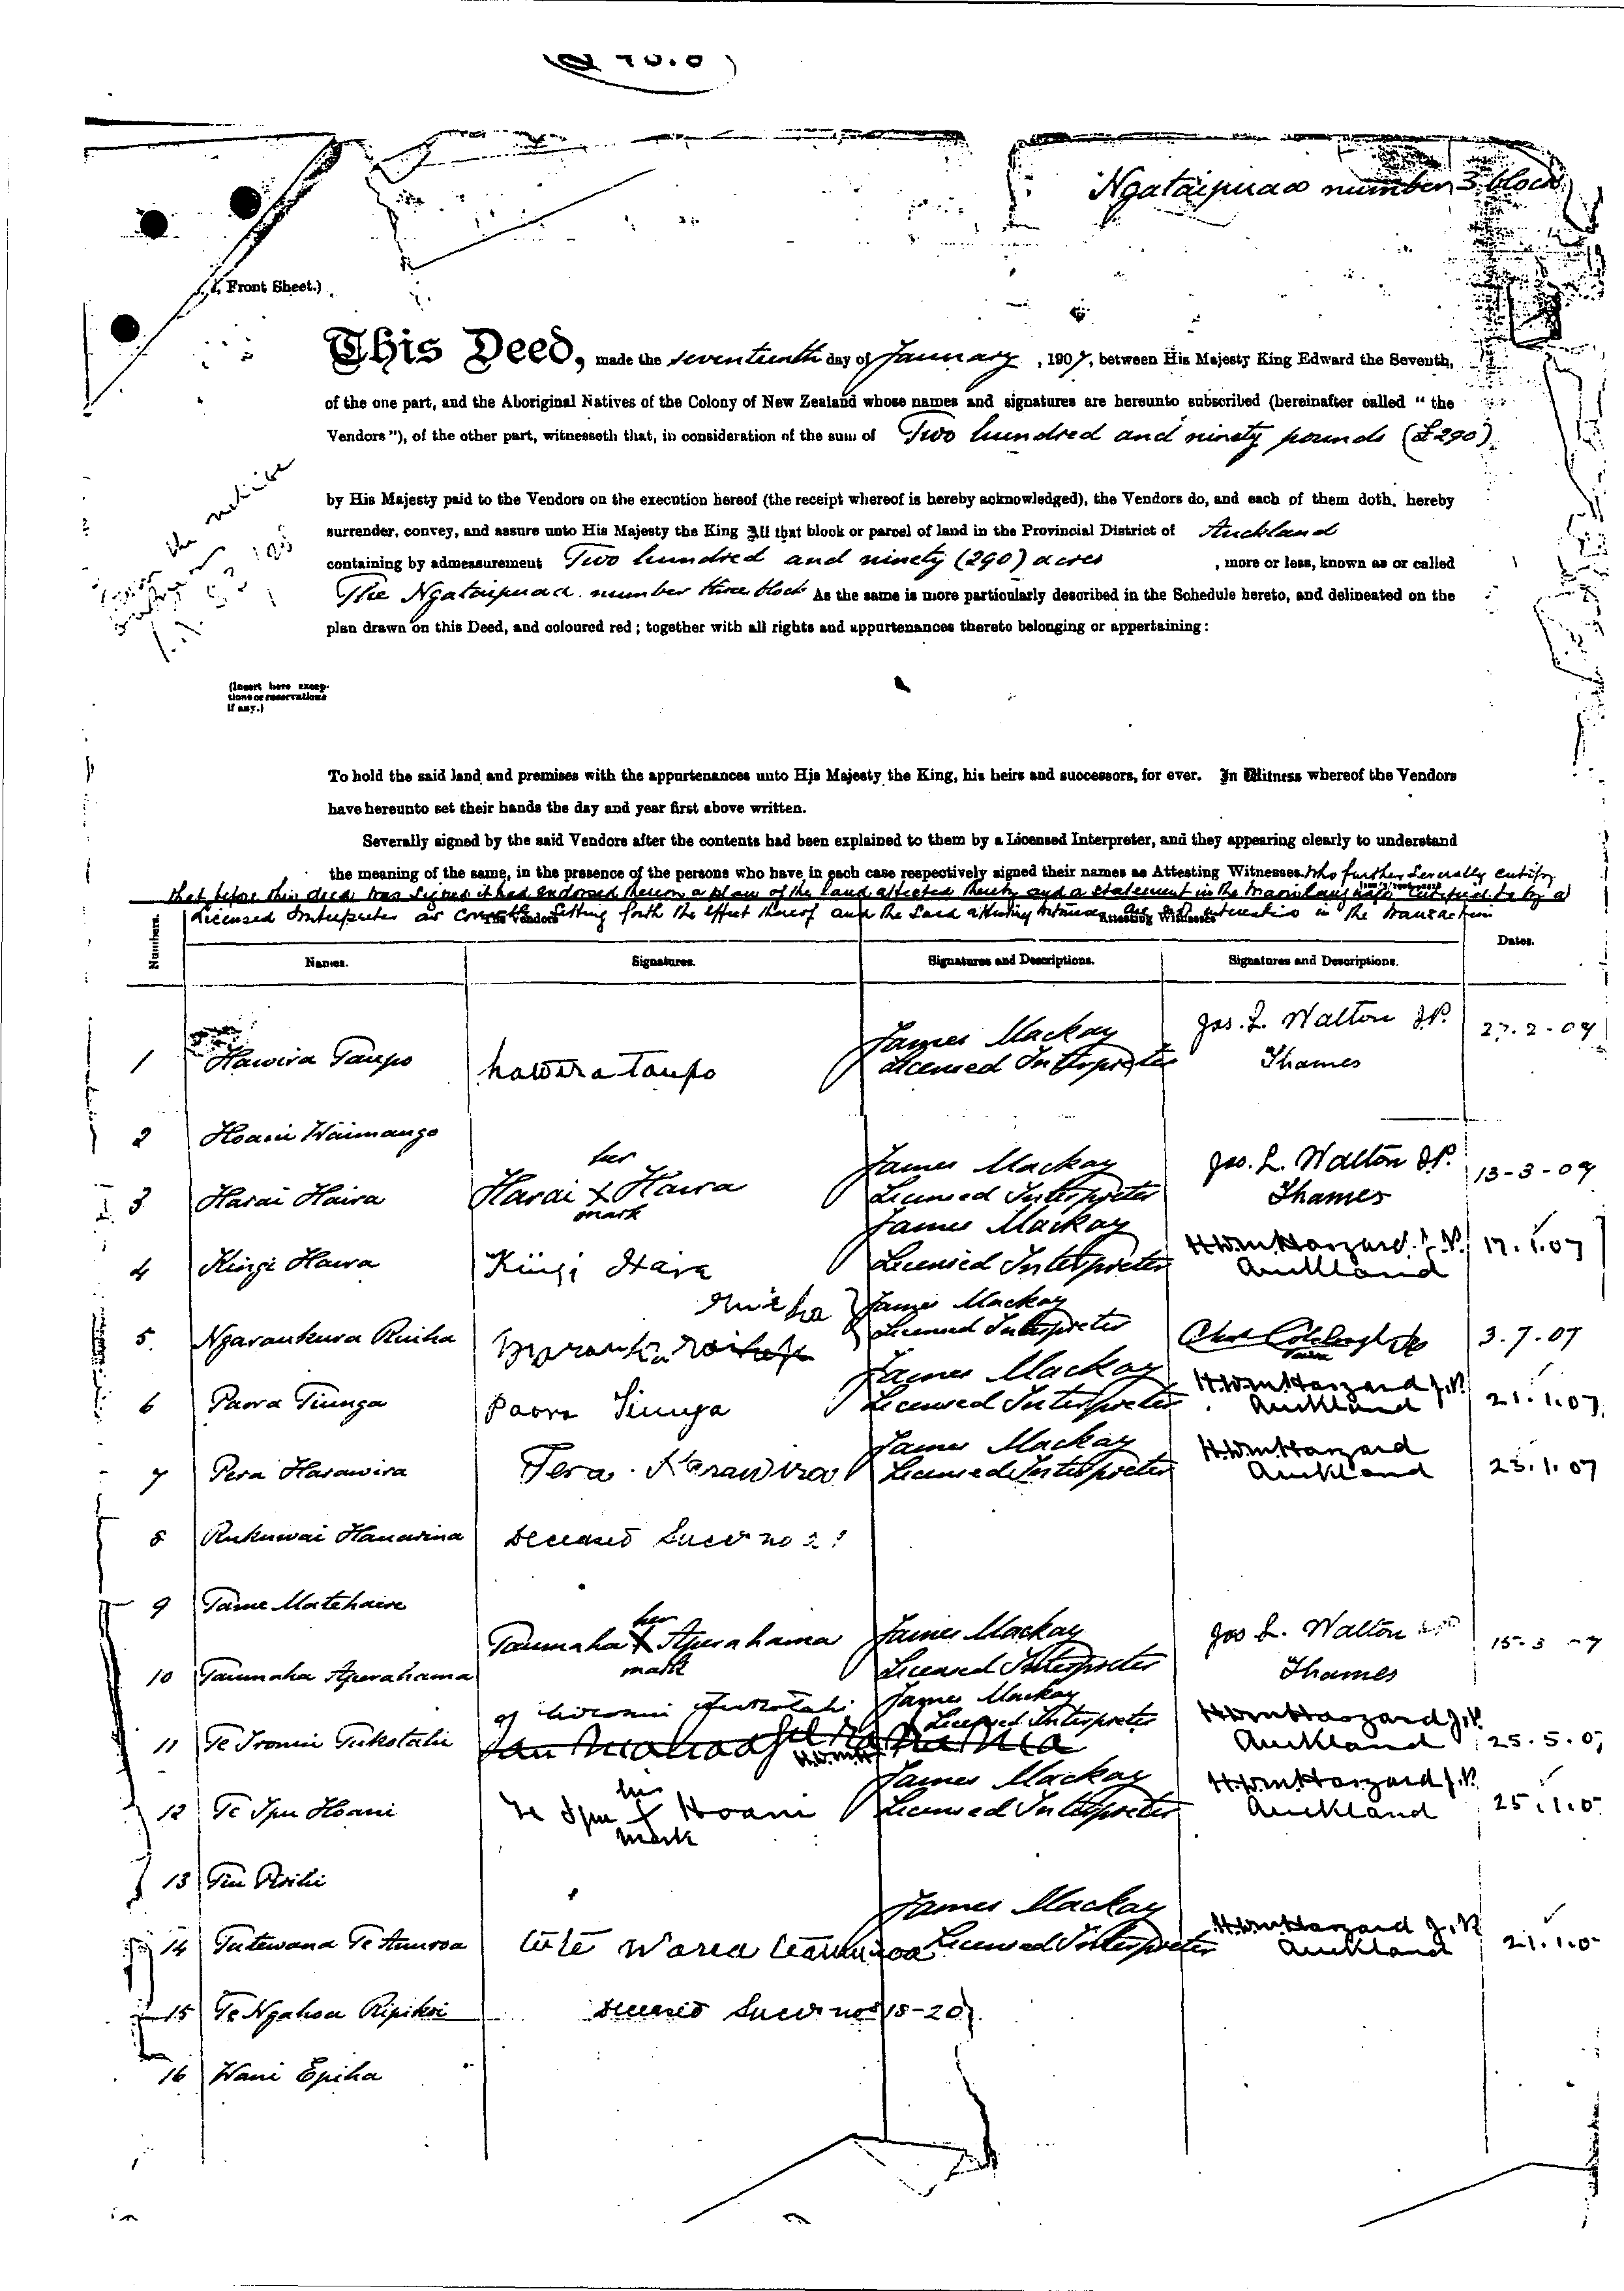 Ngataipuaa number 3 block
Front Sheet.)
This Deed, made the seventeenth day of January, 1907, between His Majesty King Edward the Seventh,
of the one part, and the Aboriginal Natives of the Colony of New Zealand whose names and signatures are hereunto subscribed (hereinafter called " the
Vendors"), of the other part, witnesseth that, in consideration of the sum of Two hundred and ninety pounds (£290)
by His Majesty paid to the Vendors on the execution hereof (the receipt whereof is hereby acknowledged), the Vendors do, and each of them doth, hereby
surrender, convey, and assure unto His Majesty the King All that block or parcel of land in the Provincial District of Auckland
containing by admeasurement Two hundred and ninety (290) acres , more or less, known as or called
The Ngataipuaa number three block As the same is more particularly described in the Schedule hereto, and delineated on the
plan drawn on this Deed, and coloured red; together with all rights and appurtenances thereto belonging or appertaining:
(Insert here excep-
tions or reservations
if any.)
To hold the said land and premises with the appurtenances unto His Majesty the King, his heirs and successors, for ever. In Witness whereof the Vendors
have hereunto set their hands the day and year first above written.
Severally signed by the said Vendors after the contents had been explained to them by a Licensed Interpreter, and they appearing clearly to understand
the meaning of the same, in the presence of the persons who have in each case respectively signed their names as Attesting Witnesses. Who further severally certify
that before this deed was signed it had endorsed thereon a plan of the land affected thereby and a statement in the Maori language certified to by a
Licensed Interpreter as correctly setting forth the effect thereof and the said attesting witnesses are not interested in the transaction
Numbers. The Vendors Attesting Witnesses Dates.
Names. Signatures. Signatures and Descriptions. Signatures and Descriptions.
1 Hawira Taupo hawira Taupo James Mackay Licensed Interpreter Jos. L. Walton J.P. Thames 27-2-07
2 Hoani Waimango
3 Harai Haira Harai X Haira her mark James Mackay Licensed Interpreter Jos. L. Walton J.P. Thames 13-3-07
4 Kingi Hawa Kingi Hara James Mackay Licensed Interpreter H Wm Haszard J.P. Auckland 17.1.07
5 Ngarankura Ruiha Ruiha James Mackay Licensed Interpreter 3.7.07
6 Paora Tiunga Paora Tiunga James Mackay Licensed Interpreter H Wm Haszard J.P. Auckland 21.1.07
7 Pera Harawira Pera Harawira James Mackay Licensed Interpreter H Wm Haszard Auckland 23.1.07
8 Rukuwai Hanarina Deceased Succr no
9 Tame Matehaire
10 Taumaha Aperahama Taumaha X Aperahama her mark James Mackay Licensed Interpreter Jos L. Walton Thames 15-3-7
11 Te Iromii Tukotahi James Mackay Licensed Interpreter H Wm Haszard J.P. Auckland 25.5.0
12 Te Ipu Hoani Te Ipu X Hoani his mark James Mackay Licensed Interpreter H Wm Haszard J.P. Auckland 25.1.0
13 Tiu
14 Tutewana Te Amuroa James Mackay Licensed Interpreter H Wm Haszard J.P. Auckland 21.1.0
15 Te Ngahoa Ripikoi Deceased Succr nos 18-20
16 Wani Epiha